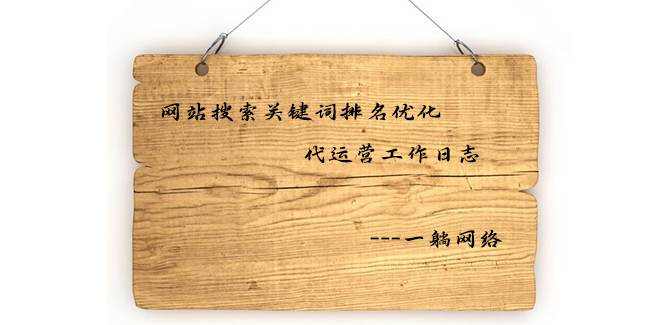 网站搜索关键词排名优化
代运营工作日志
---一躺网络